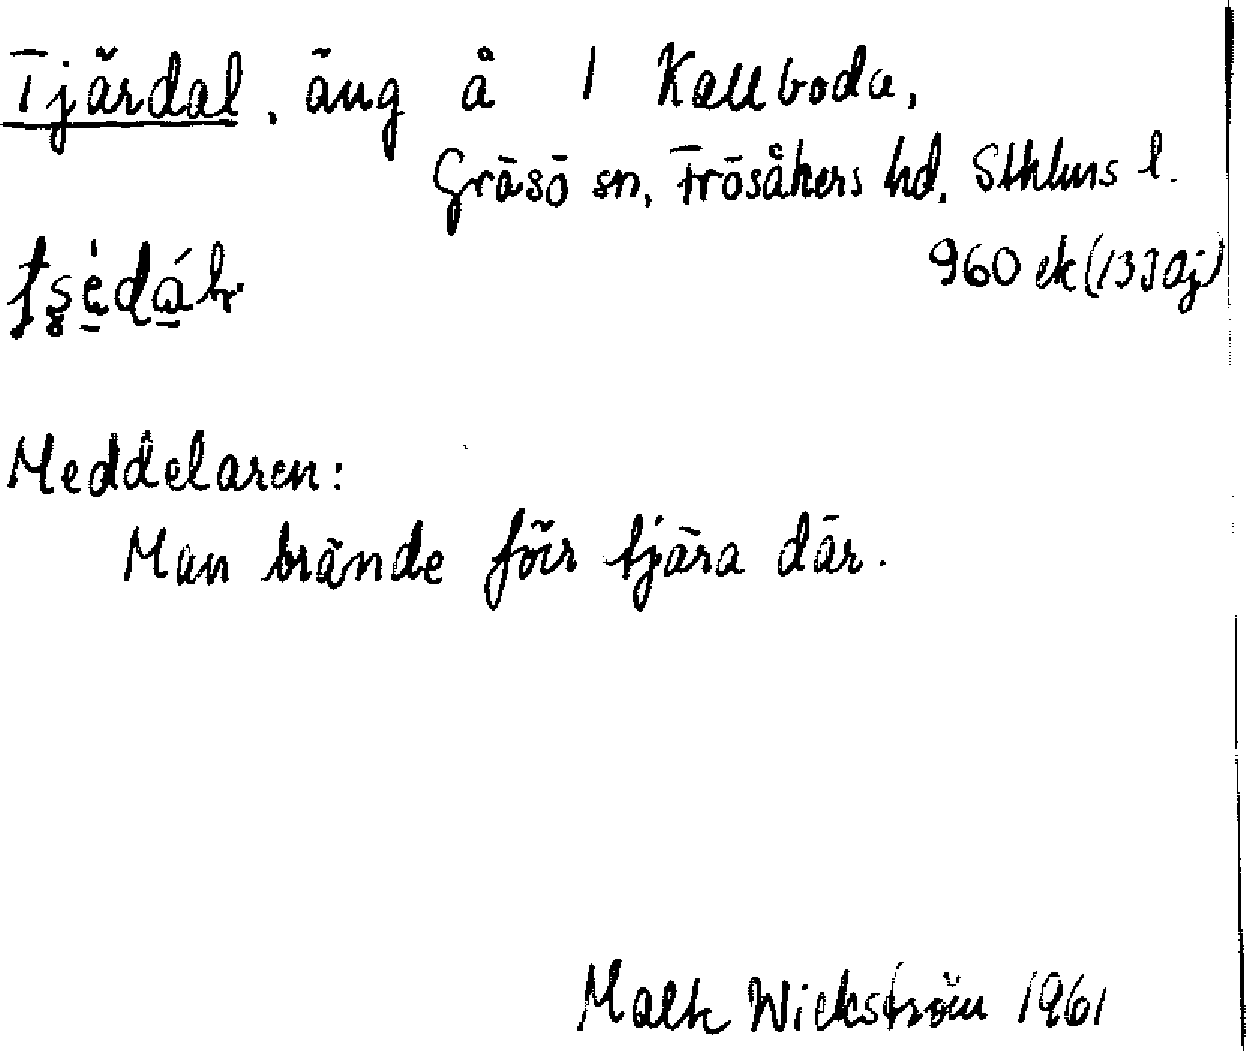 Tjärdal, äng å 1 Kallboda,
Gräsö sn, Frösåkers hd. Sthlms l.
960 ek (13J 0j)
Meddelaren:
Man brände förr tjära där.
Wickström 1961